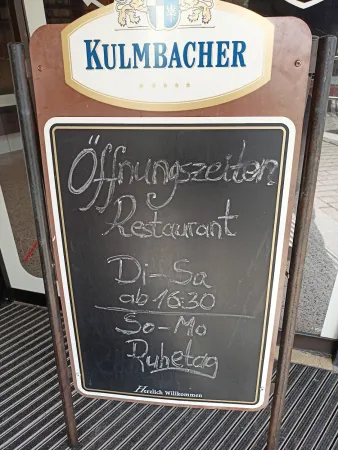 KULMBACHER
Öffnungszeiten
Restaurant
Di-Sa
ab 16:30
So-Mo
Ruhetag
Herzlich Willkommen